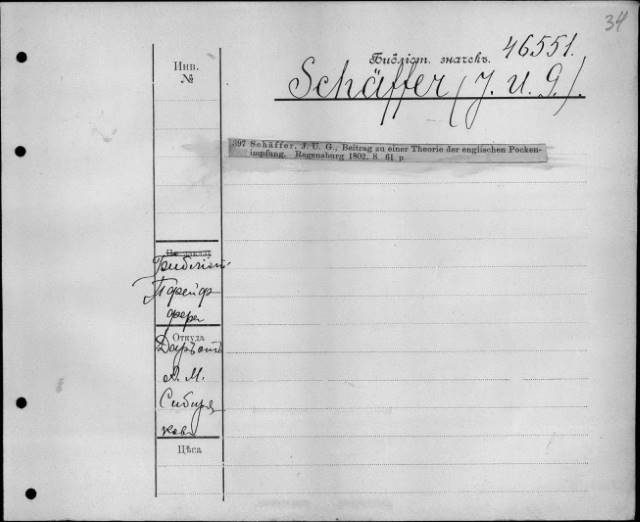 34
Библіот. значекъ. 46551.
Инв.
№
Schäffer (J. U. G.).
397 Schäffer, J. U. G., Beitrag zu einer Theorie der englischen Pocken-
impfung. Regensburg 1802. 8. 61 p.
Библіот.
Пфейф
фера
Откуда
Даръ отъ
А. М.
Сибиря
кова
Цѣна